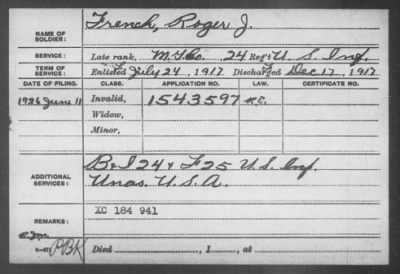 NAME OF SOLDIER: French, Roger J.
SERVICE: Late rank, M.G. Co. 24 Reg't U. S. Inf.
TERM OF SERVICE: Enlisted July 24, 1917 Discharged Dec 17, 1917
DATE OF FILING. CLASS. APPLICATION NO. LAW. CERTIFICATE NO.
1926 June 11 Invalid, 1543597 K.C.
Widow,
Minor,
ADDITIONAL SERVICES: B & I 24 & F 25 U. S. Inf.
Unas. U. S. A.
REMARKS: XC 184 941
PBK Died , 1 , at